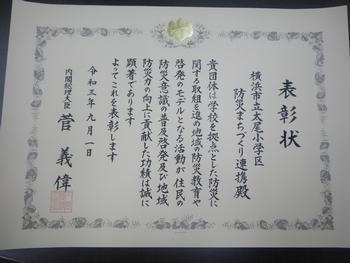 表彰状
横浜市立太尾小学区
防災まちづくり連携殿
貴団体は学校を拠点とした防災に
関する取組を進め地域の防災教育や
啓発のモデルとなる活動が住民の
防災意識の普及啓発及び地域
防災力の向上に貢献した功績は誠に
顕著であります
よってこれを表彰します
令和三年九月一日
内閣総理大臣 菅義偉